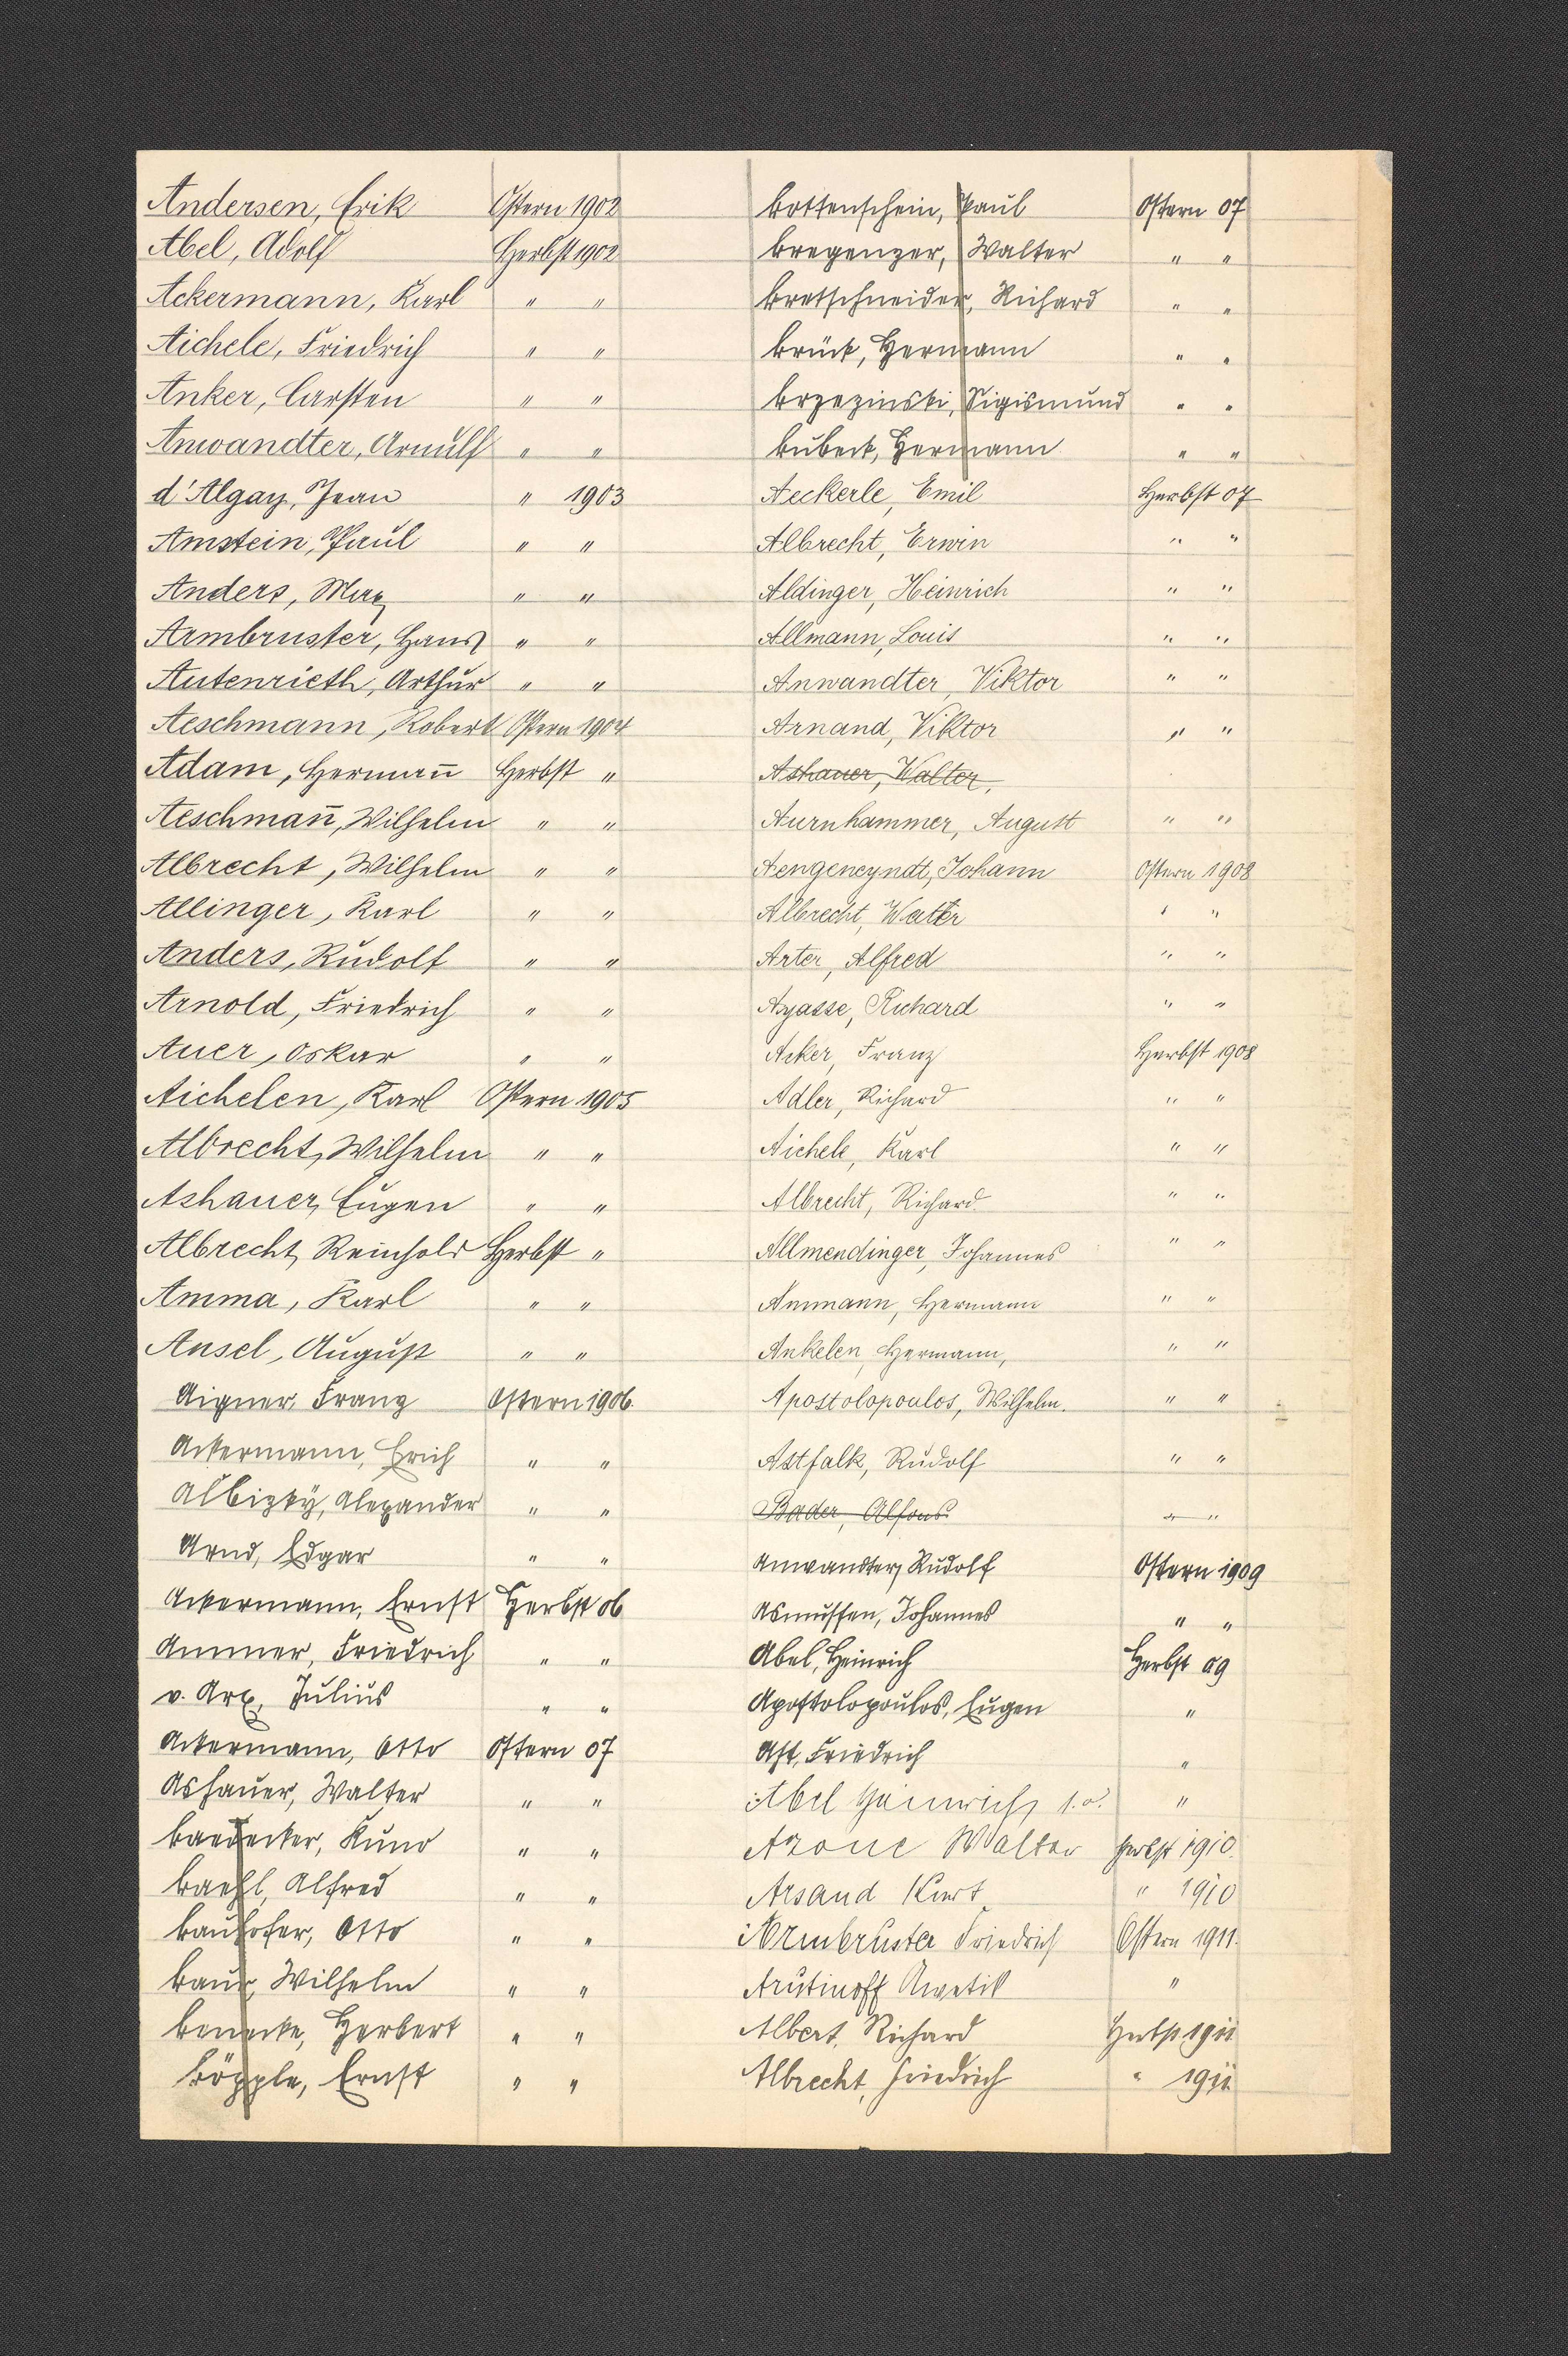 Andersen, Erik Ostern 1902
Abel, Adolf Herbst 1902
Ackermann, Karl " "
Aichele, Friedrich " "
Anker, Carsten " "
Anwandter, Arnulf " "
d'Algay, Jean " 1903
Amstein, Paul " "
Anders, Max " "
Armbruster, Hans " "
Autenrieth, Arthur " "
Aeschmann, Robert Ostern 1904
Adam, Herman̅ Herbst "
Aeschman̅, Wilhelm " "
Albrecht, Wilhelm " "
Allinger, Karl " "
Anders, Rudolf " "
Arnold, Friedrich " "
Auer, Oskar " "
Aichelen, Karl Ostern 1905
Albrecht, Wilhelm " "
Ashauer, Eugen " "
Albrecht, Reinhold Herbst "
Amma, Karl " "
Ansel, August " "
Aigner, Franz Ostern 1906.
Ackermann, Erich " "
Albizky, Alexander " "
Arnd, Edgar " "
Ackermann, Ernst Herbst 06
Ammer, Friedrich " "
v. Arx, Julius " "
Ackermann, Otto Ostern 07
Ashauer, Walter " "
Baedecker, Kuno " "
Baehl, Alfred " "
Bauhofer, Otto " "
Baur, Wilhelm " "
Benecke, Herbert " "
Böpple, Ernst " "
Bottenschein, Paul Ostern 07
Bregenzer, Walter " "
Bretschneider, Richard " "
Brück, Hermann " "
Brzezinski, Sigismund " "
Bubeck, Hermann " "
Aeckerle, Emil Herbst 07
Albrecht, Erwin " "
Aldinger, Heinrich " "
Allmann, Louis " "
Anwandter, Viktor " "
Arnand, Viktor " "
Ashauer, Walter,
Aurnhammer, August " "
Aengeneyndt, Johann Ostern 1908
Albrecht, Walter " "
Arter, Alfred " "
Ayasse, Richard " "
Acker, Franz Herbst 1908
Adler, Richard " "
Aichele, Karl " "
Albrecht, Richard " "
Allmendinger, Johannes " "
Ammann, Hermann " "
Ankelen, Hermann, " "
Apostolopoulos, Wilhelm. " "
Astfalk, Rudolf " "
Bader, Alfons " "
Anwandter, Rudolf Ostern 1909
Asmussen, Johannes " "
Abel, Heinrich Herbst 09
Apostolopoulos, Eugen "
Ast, Friedrich "
Abel Heinrich "
Azone Walter Herbst 1910.
Arsand Kurt " 1910
Armbruster Friedrich Ostern 1911.
Arutinoff Awetik "
Albert, Richard Herbst 1911
Albrecht, Friedrich " 1911